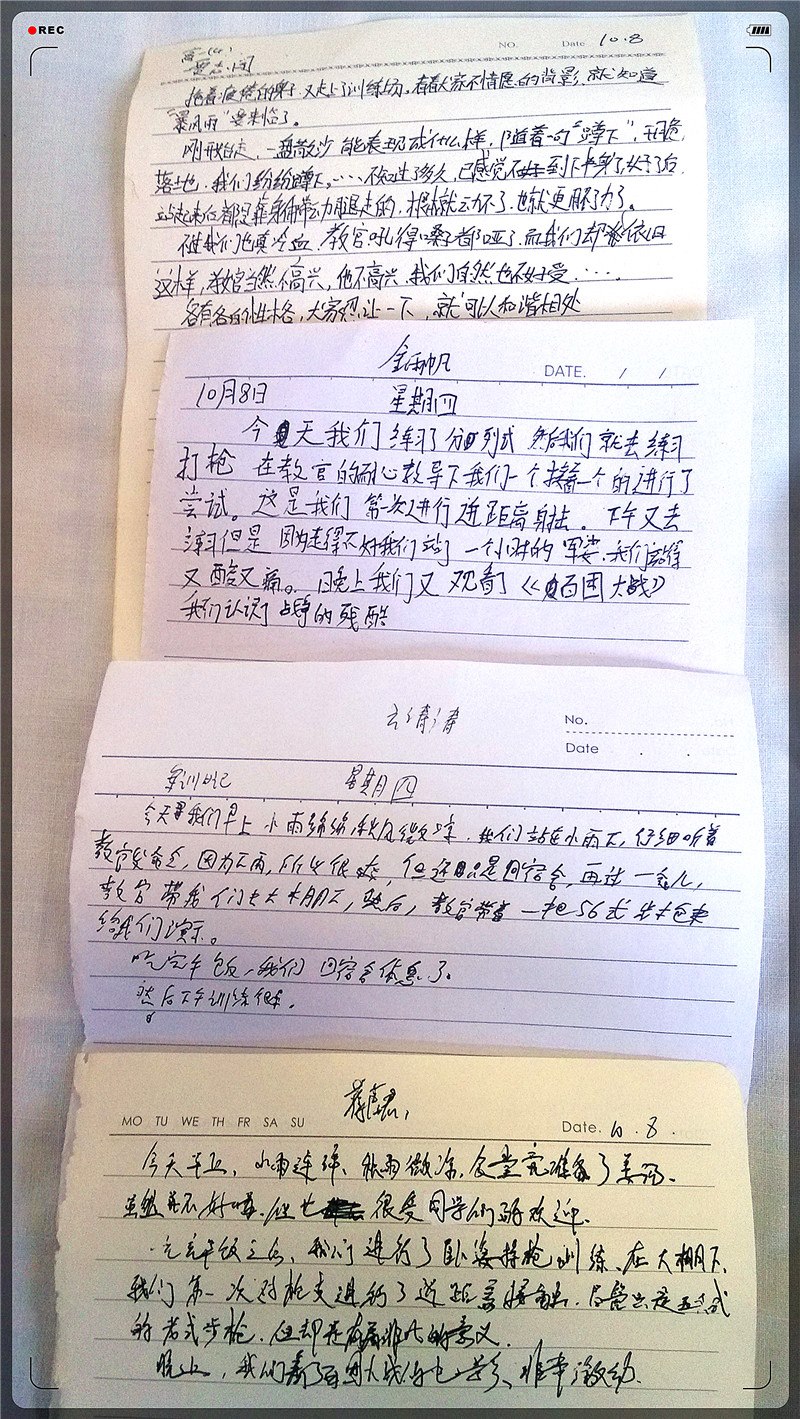 REC
NO. Date 10.8
拖着疲倦的身子,又走上了训练场。看着大家不情愿的背影,就知道
"暴风雨"要来临了。
刚开始走,一盘散沙能表现成什么样,随着一句"蹲下",
落地,我们纷纷蹲下。……不知过了多久,已感觉不到下半身了,好了后,
站起来后都是靠身体带动腿走的,根本就动不了,也就更用不了力了。
我们也真冷血,教官吼得嗓子都哑了,而我们却依旧
这样,教官当然不高兴,他不高兴,我们自然也不好受……
各有各的性格,大家忍让一下,就可以和谐相处
DATE. / /
10月8日 星期四
今天我们练习了分列式 然后我们就去练习
打枪 在教官的耐心教导下我们一个接着一个的进行了
尝试。这是我们第一次进行近距离射击。下午又去
练习但是因为走得不好我们站了一个小时的军姿,我们站得
又酸又痛。晚上我们又观看了《百团大战》
我们认识了战争的残酷
No.
Date . .
军训日记 星期四
今天我们早上小雨绵绵,秋风微凉,我们站在小雨下,仔细听着
教官发命令,因为下雨,所以很凉,但还不是回宿舍,再过一会儿,
教官带我们去大棚下,然后,教官带着一把56式步枪来
给我们演示。
吃完午饭,我们回宿舍休息了。
然后下午训练很
MO TU WE TH FR SA SU Date. 10.8.
今天早上,小雨连绵,秋雨微凉,食堂完准备了姜汤。
虽然并不好喝,但也很受同学们的欢迎。
吃完午饭之后,我们进行了卧姿持枪训练,在大棚下,
我们第一次对枪支进行了近距离接触。尽管只是五六式
的老式步枪,但却是有着非凡的意义。
晚上,我们看了百团大战的电影、非常激动。